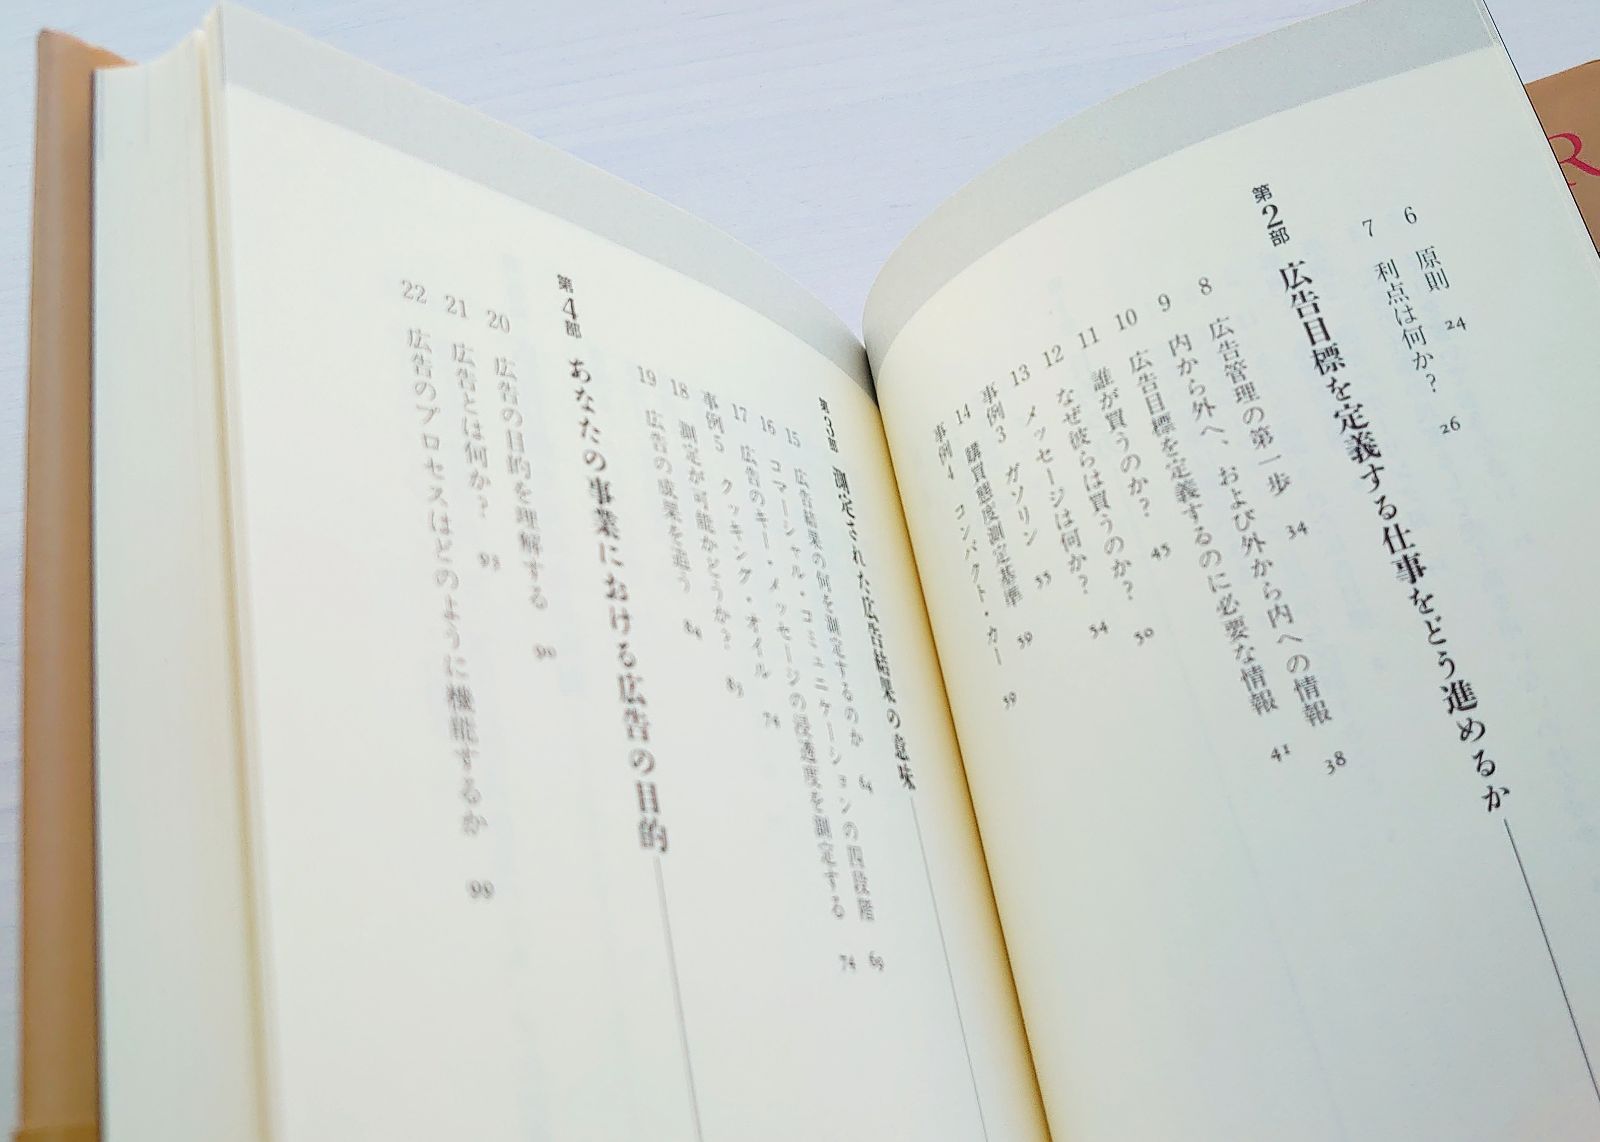 6 原則 24
7 利点は何か? 26
第2部 広告目標を定義する仕事をどう進めるか
8 広告管理の第一歩 34
9 内から外へ、および外から内への情報 38
10 広告目標を定義するのに必要な情報 41
11 誰が買うのか? 45
12 なぜ彼らは買うのか? 50
13 メッセージは何か? 54
事例3 ガソリン 55
14 購買態度測定基準 59
事例4 コンパクト・カー 59
第3部 測定された広告結果の意味
15 広告結果の何を測定するのか 64
16 コマーシャル・コミュニケーションの四段階 69
17 広告のキー・メッセージの浸透度を測定する 74
事例5 クッキング・オイル 75
18 測定が可能かどうか? 83
19 広告の成果を追う 84
第4部 あなたの事業における広告の目的
20 広告の目的を理解する 90
21 広告とは何か? 93
22 広告のプロセスはどのように機能するか 99
R